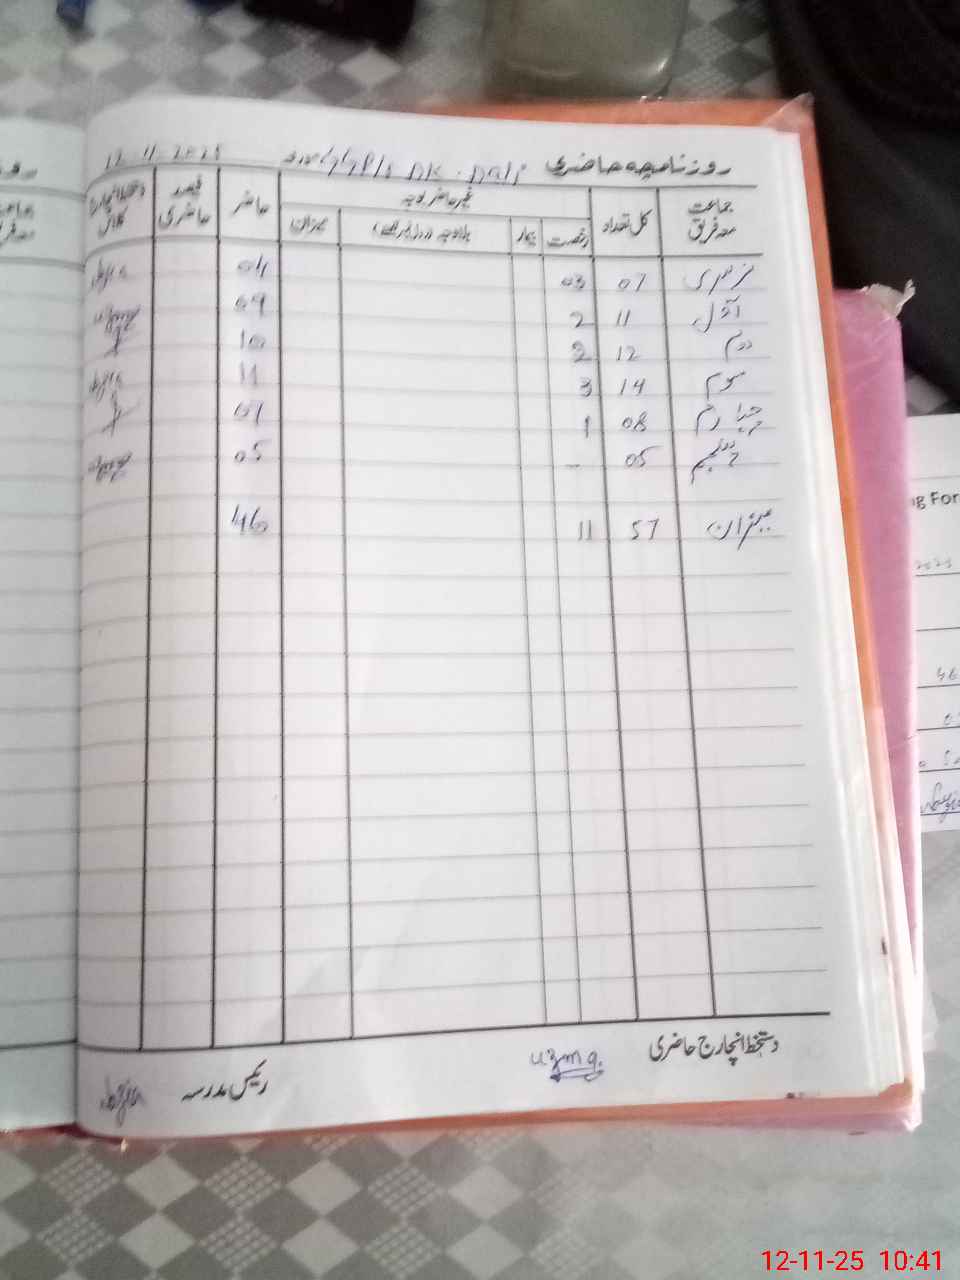 روزنامچہ حاضری مدرسہ GGP/S DK. Dali 12-11-2025
جماعت معہ فریق کل تعداد غیر حاضر بوجہ حاضر فیصد حاضری دستخط انچارج کلاس
رخصت بیمار بلاوجہ میزان
نرسری 07 03 04
اول 11 2 09
دوم 12 2 10
سوم 14 3 11
چہارم 08 1 07
پنجم 05 - 05
میزان 57 11 46
دستخط انچارج حاضری Uzma
رئیس مدرسہ
ng For
2025
46
12-11-25 10:41